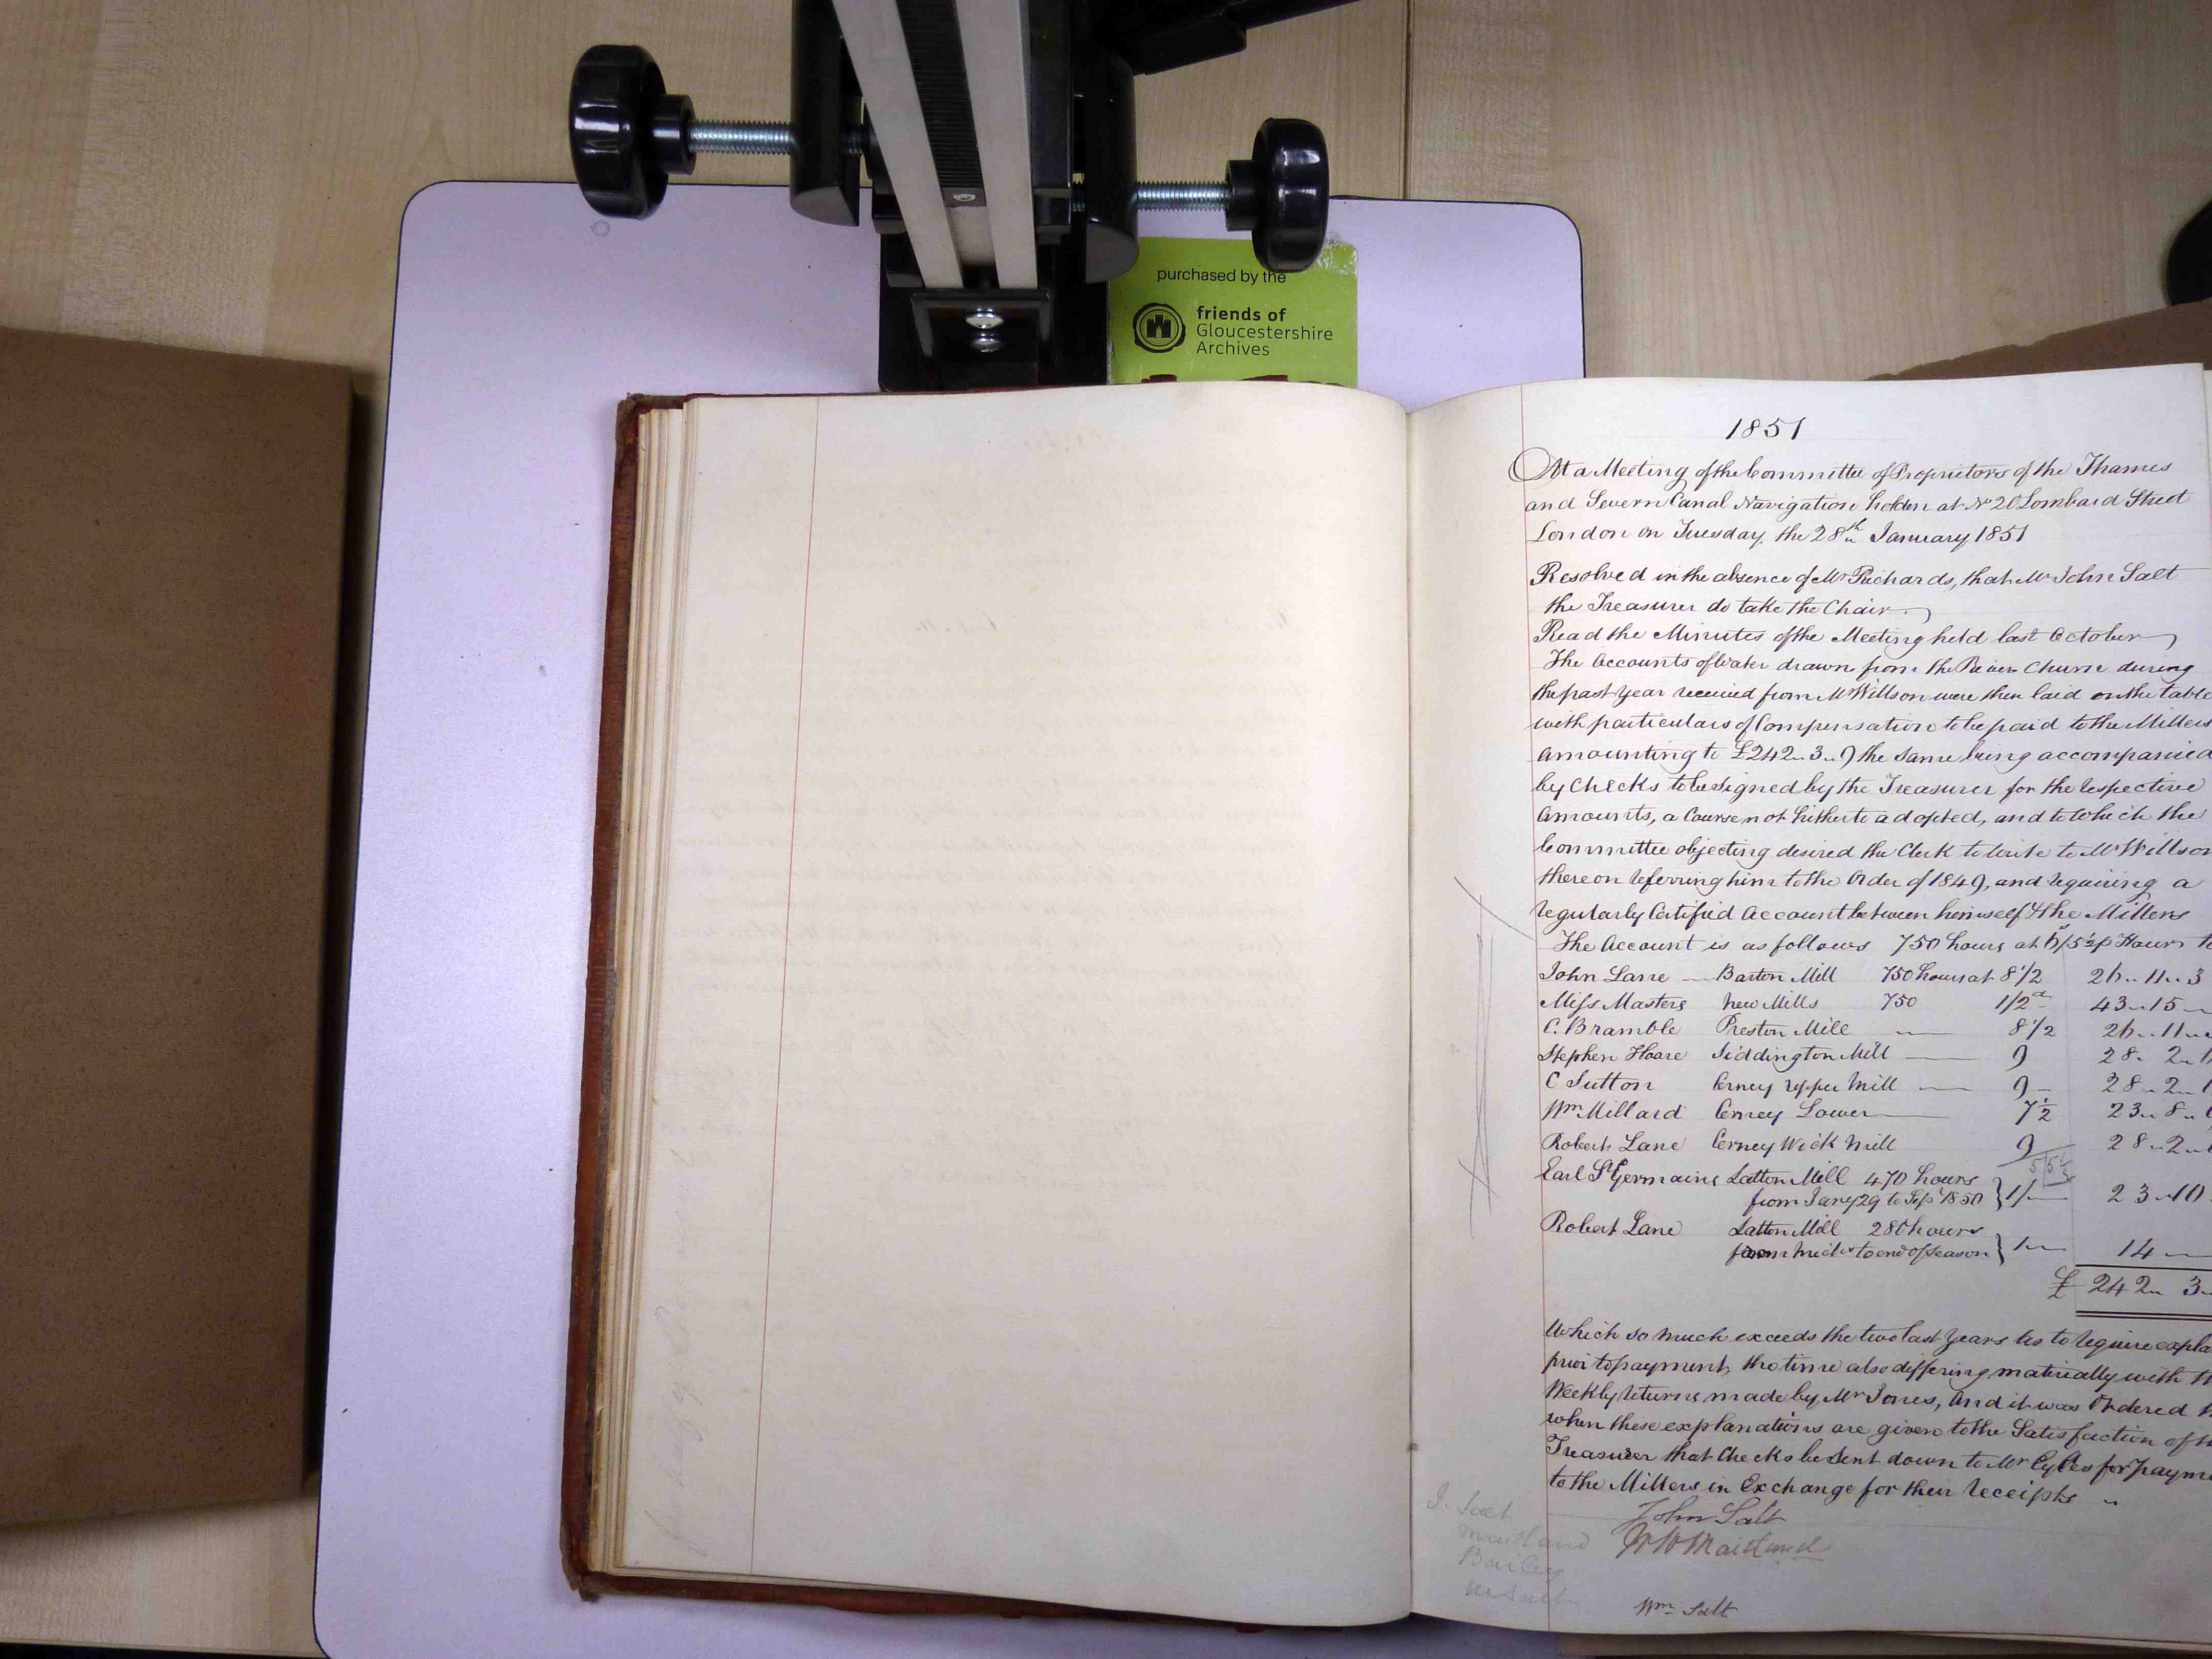 purchased by the
friends of
Gloucestershire
Archives
1851
At a Meeting of the Committee of Proprietors of the Thames
and Severn Canal Navigation holden at No 20 Lombard Street
London on Tuesday the 28th January 1851
Resolved in the absence of Mr Richards, that Mr John Salt
the Treasurer do take the Chair.
Read the Minutes of the Meeting held last October
The Accounts of Water drawn from the River Churn during
the past Year received from Mr Willson were then laid on the table
with particulars of Compensation to be paid to the Millers
amounting to £242 " 3 " 9 the same being accompanied
by Checks to be signed by the Treasurer for the respective
Amounts, a Course not hitherto adopted, and to which the
Committee objecting desired the Clerk to write to Mr Willson
thereon referring him to the Order of 1849, and requiring a
regularly Certified Account between himself & the Millers
The Account is as follows 750 hours at 6/5½ p Hour
John Lane Barton Mill 750 hours at 8 1/2 26 " 11 " 3
Miss Masters New Mills 750 1/2d 43 " 15 "
C. Bramble Preston Mill 8 1/2 26 " 11 "
Stephen Hoare Siddington Mill 9 28 " 2 "
C Sutton Cerney Upper Mill 9 28 " 2 "
Wm Millard Cerney Lower 7½ 23 " 8 "
Robert Lane Cerney Wick Mill 9 28 " 2 "
5/5½
Earl St Germains Latton Mill 470 hours
from Jany 29 to Sepr 1850 } 1/ 23 " 10
Robert Lane Latton Mill 280 hours
from Michs to end of Season } 1 " 14
£ 242 " 3 "
Which so much exceeds the two last Years as to require
prior to payment, the time also differing materially with
Weekly returns made by Mr Jones, And it was Ordered
when these explanations are given to the Satisfaction of
Treasurer that Checks be sent down to Mr for
to the Millers in Exchange for their receipts "
John Salt
Maitland
Wm Salt
J. Salt
Maitland
Bailey
W Salt